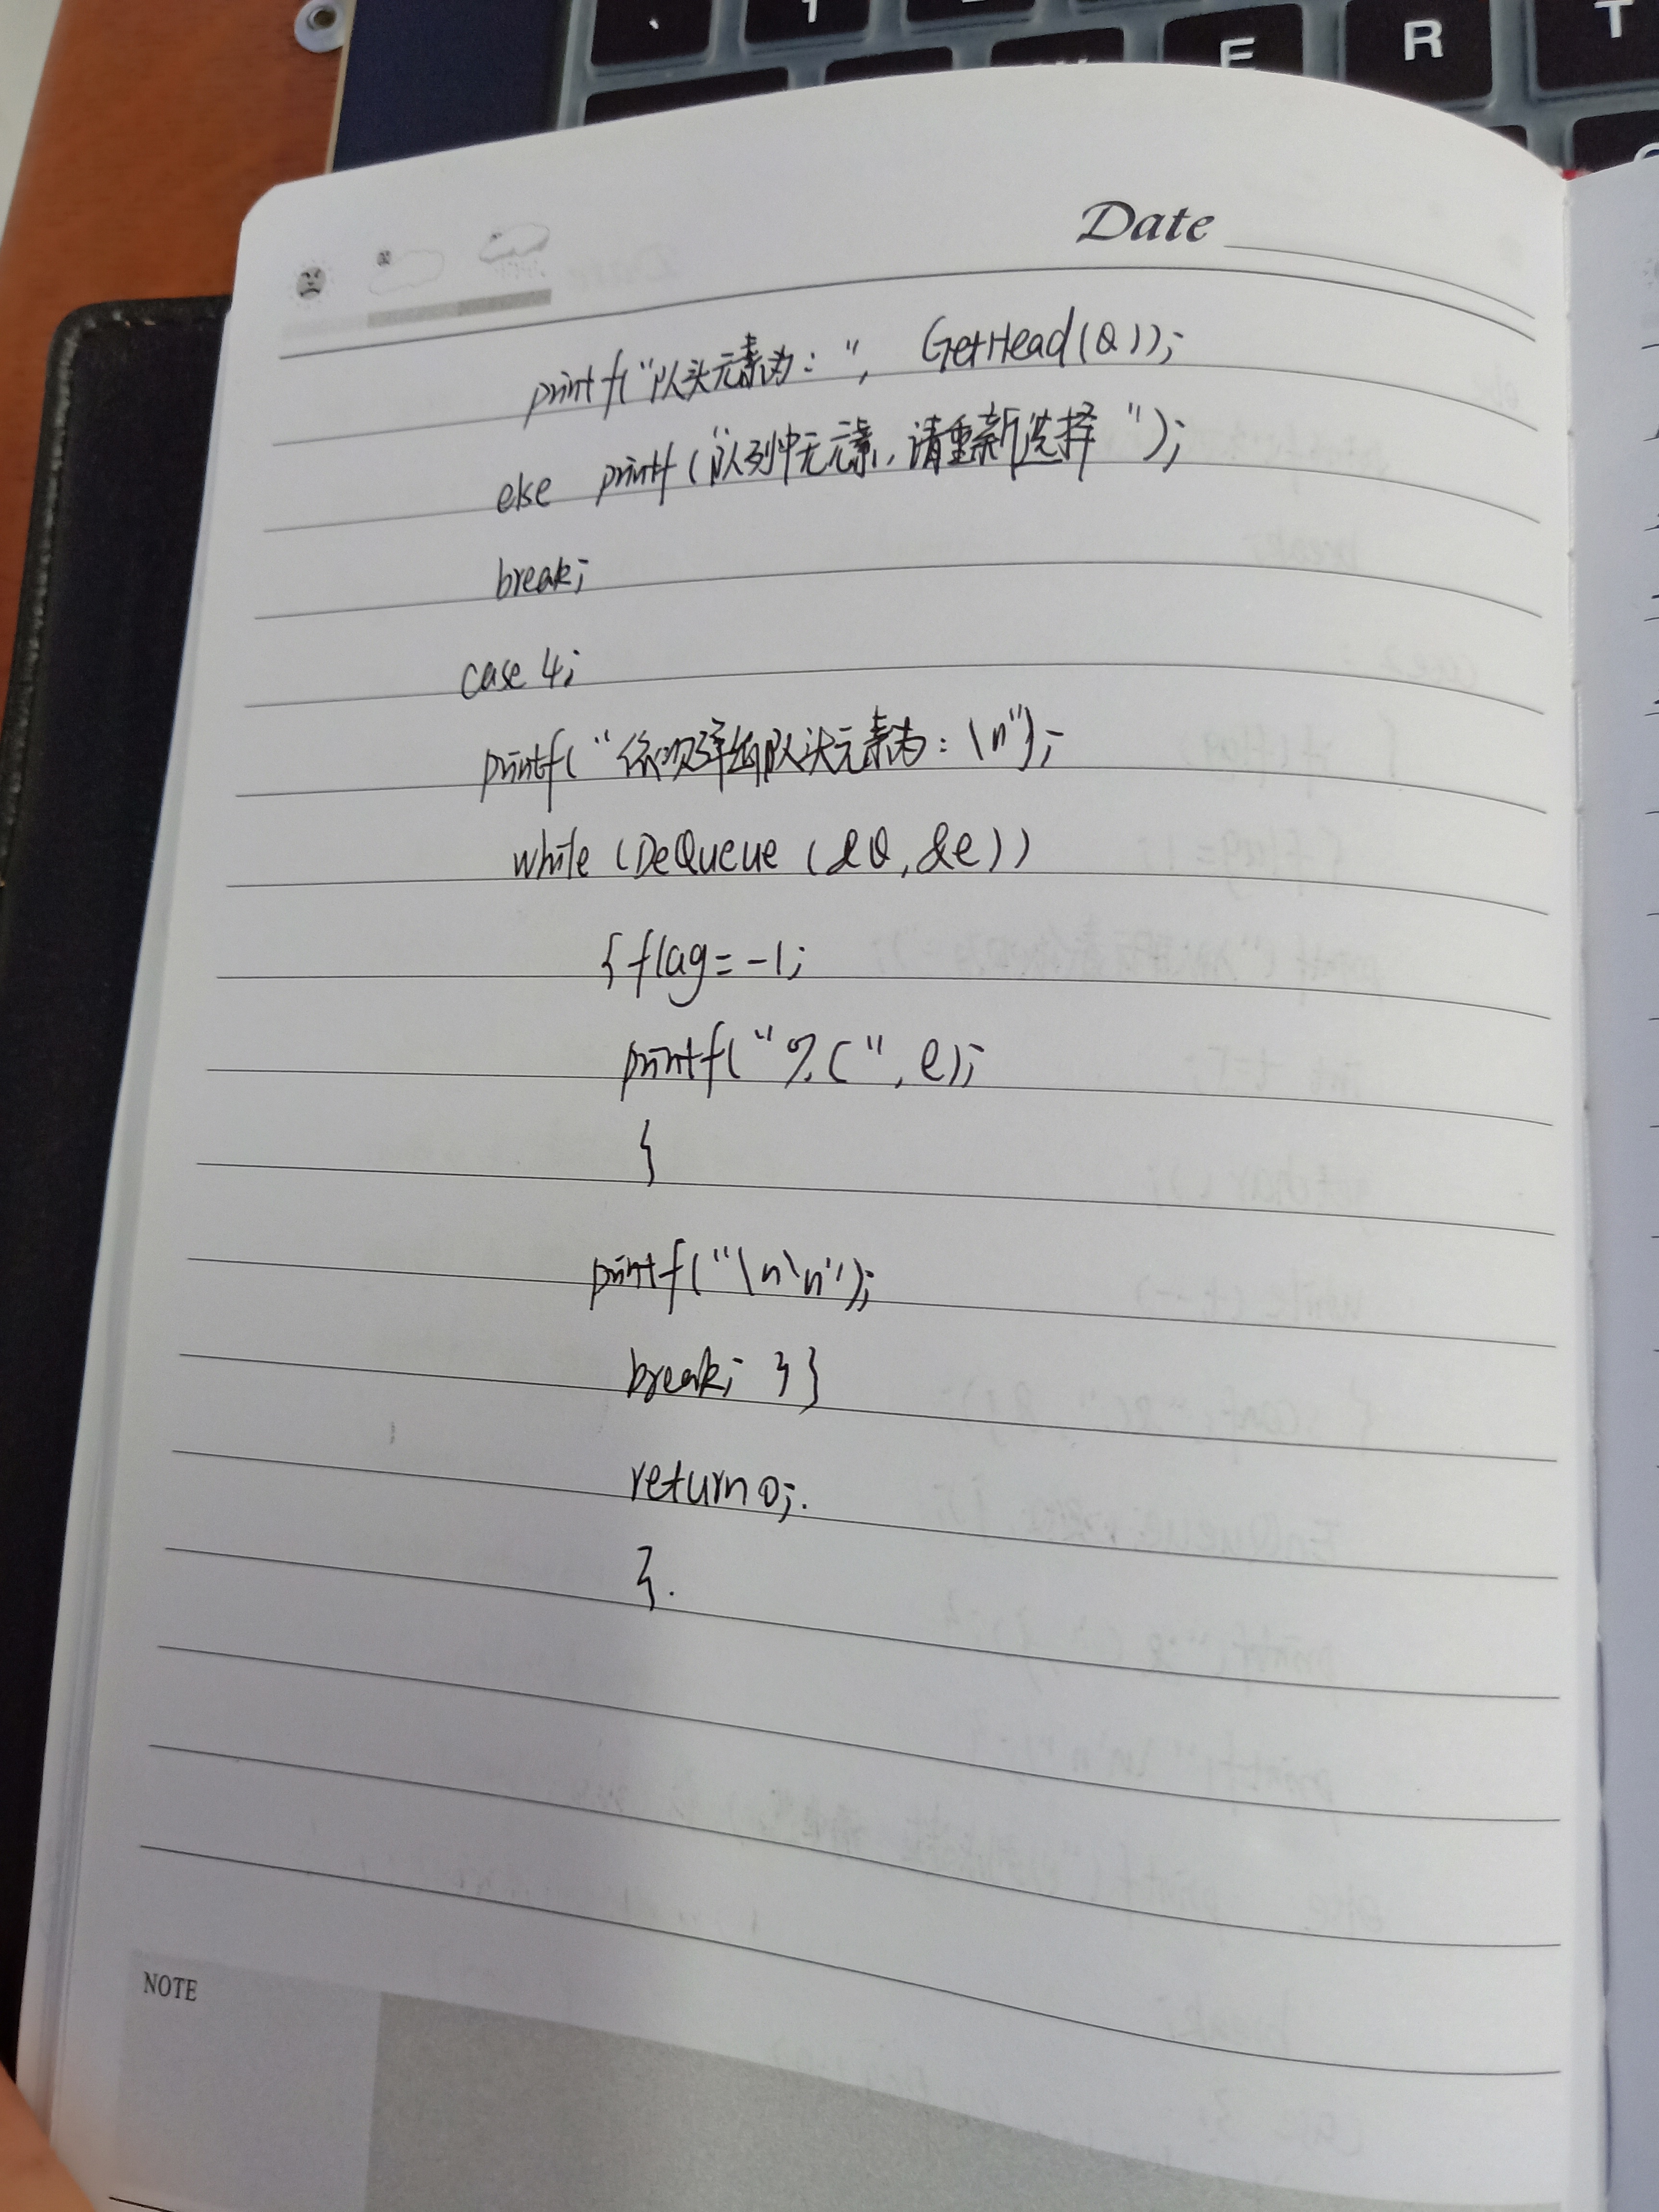 T
R
E
1
Date
printf("队头元素为:", GetHead(Q));
else printf("队列中无元素,请重新选择");
break;
case 4;
printf("依次弹出队头元素为:\n");
while (DeQueue (&Q,&e))
{flag=-1;
printf("%c",e);
}
printf("\n\n");
break; }}
return 0;.
}.
NOTE